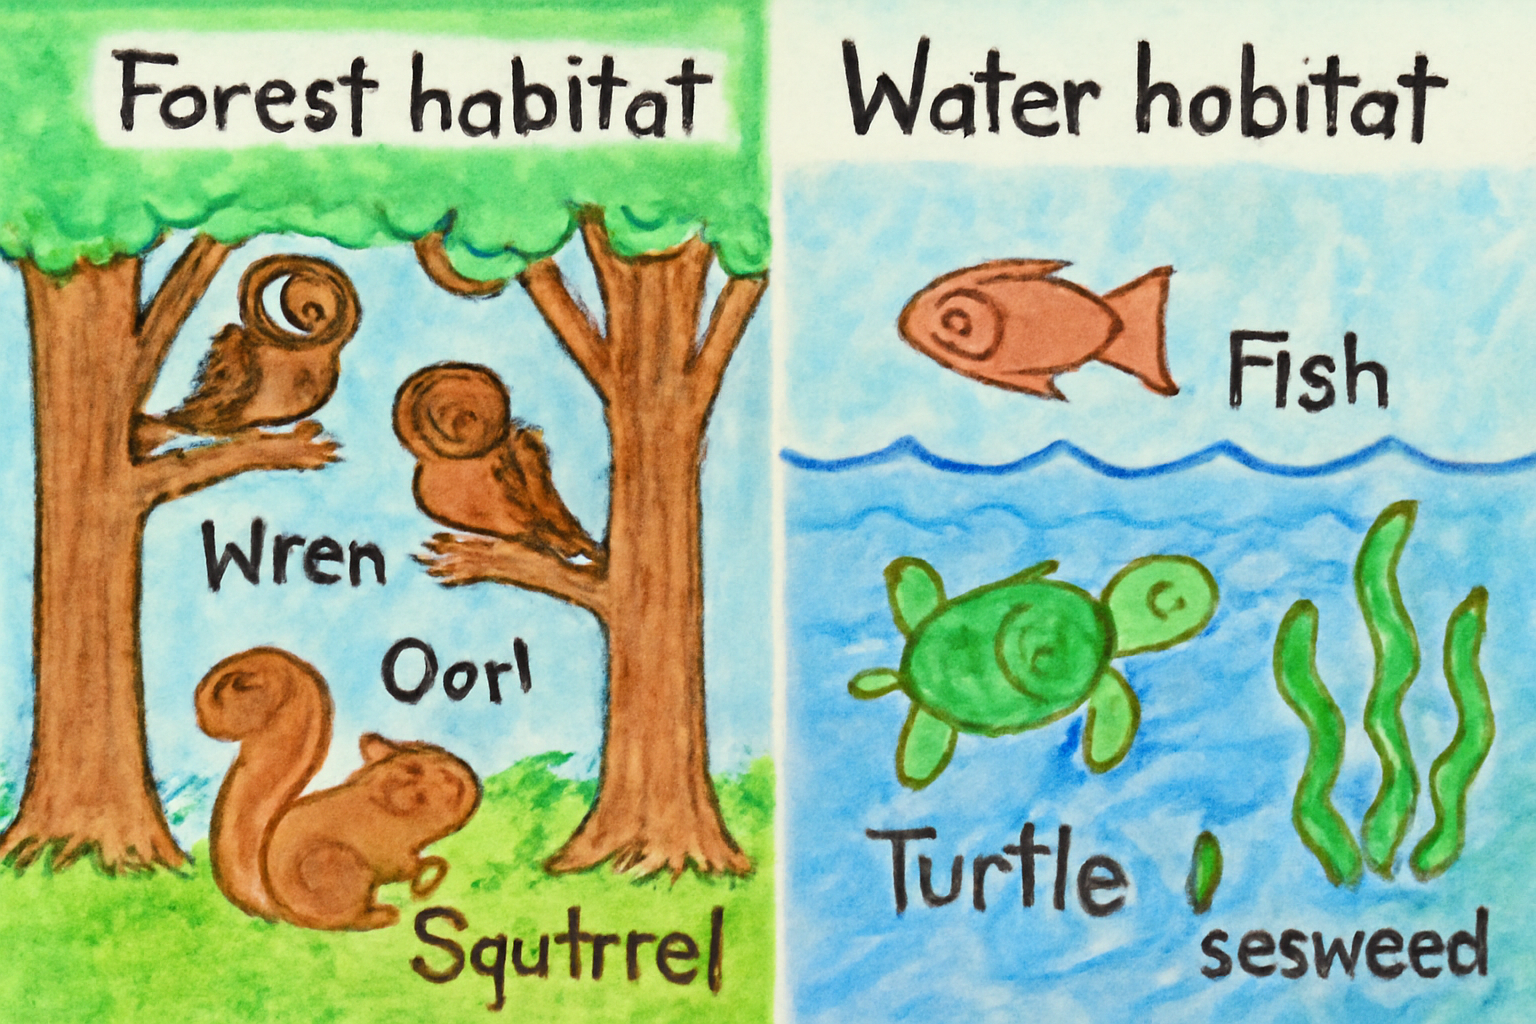 Forest habitat
Wren
Oorl
Squtrrel
Water hobitat
Fish
Turtle
sesweed